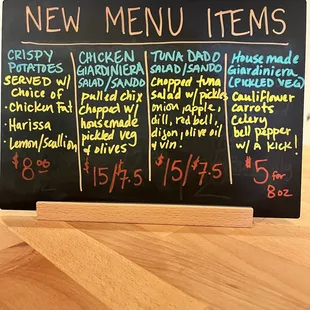 NEW MENU ITEMS
CRISPY
POTATOES
SERVED w/
Choice of
• Chicken Fat
• Harissa
• Lemon/scallion
$8.00
CHICKEN
GIARDINIERA
SALAD/SANDO
pulled chix
chopped w/
housemade
pickled veg
& olives
$15/$7.5
TUNA DADO
SALAD/SANDO
chopped tuna
salad w/ pickles
onion, apple,
dill, red bell,
dijon, olive oil
& vin.
$15/$7.5
Housemade
Giardiniera
(PICKLED VEG)
Cauliflower
carrots
Celery
bell pepper
w/ a kick!
$5 for
8oz